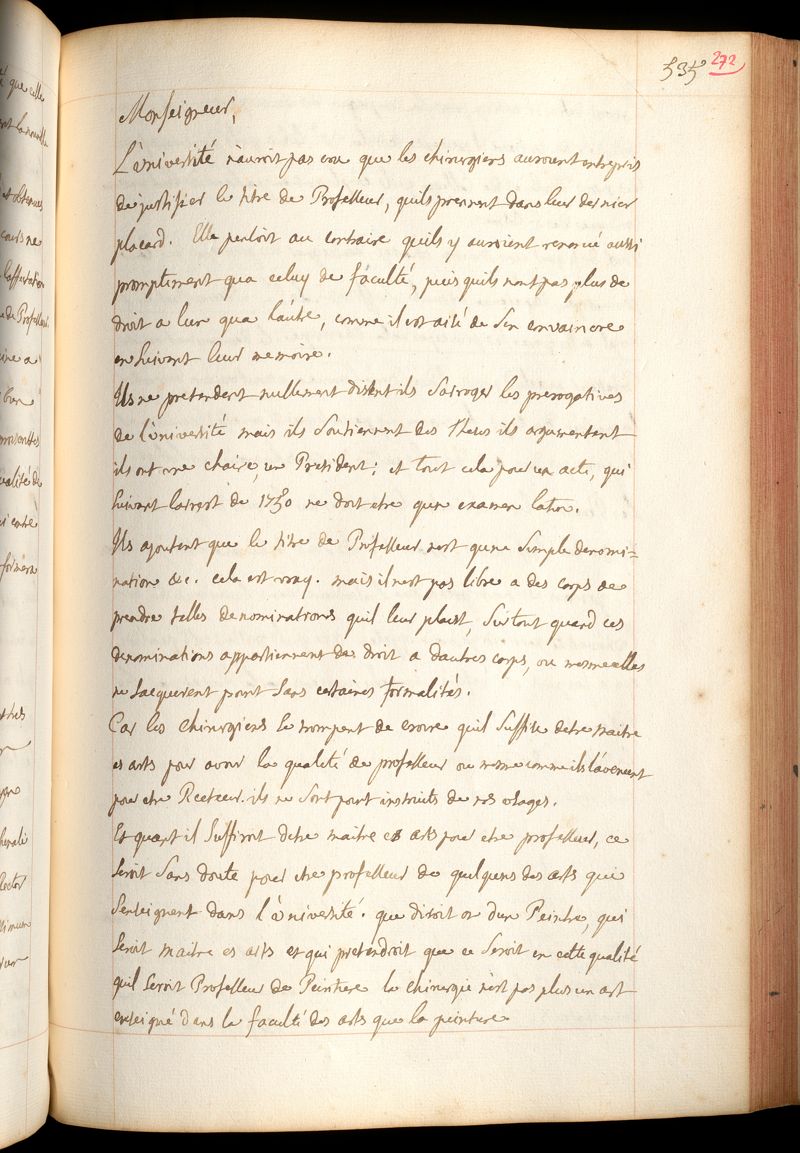 535 272
Monseigneur,
L'université n'auroit pas cru que les chirurgiens auroient entrepris
de justifier le titre de Professeur, quils prennent dans leur dernier
placard. Elle pensoit au contraire quils y auroient renoncé aussi
promptement qua celuy de faculté, puis quils nont pas plus de
droit a lun qua l'autre, comme il est aisé de sen convaincre
en suivant leur memoire.
Ils ne pretendent nullement disent ils sarroger les prerogatives
de l'université mais ils soutiennent des Theses ils argumentent
ils ont une chaire, un President; et tout cela pour un acte, qui
suivant larrest de 1750 ne doit etre qun examen latin.
Ils ajoutent que le titre de Professeur nest qune simple denomi=
nation &c. cela est vray. mais il nest pas libre a des corps de
prendre telles denominations quil leur plaist, sur tout quand ces
denominations appartiennent de droit a dautres corps, ou mesme elles
ne sacquerent point sans certaines formalités.
Car les chirurgiens se trompent de croire quil suffise detre maitre
es arts pour avoir la qualité de professeur ou mesme comme ils lavencent
pour etre Recteur. ils ne sont point instruits de nos usages.
Et quant il suffiroit detre maitre es arts pour etre professeur, ce
seroit sans doute pour etre professeur de quelquns des arts qui
senseignent dans l'université. que diroit on dun Peintre, qui
seroit maitre es arts et qui pretendroit que ce seroit en cette qualité
quil seroit Professeur de Peinture la chirurgie n'est pas plus un art
enseigné dans la faculté des arts que la peinture